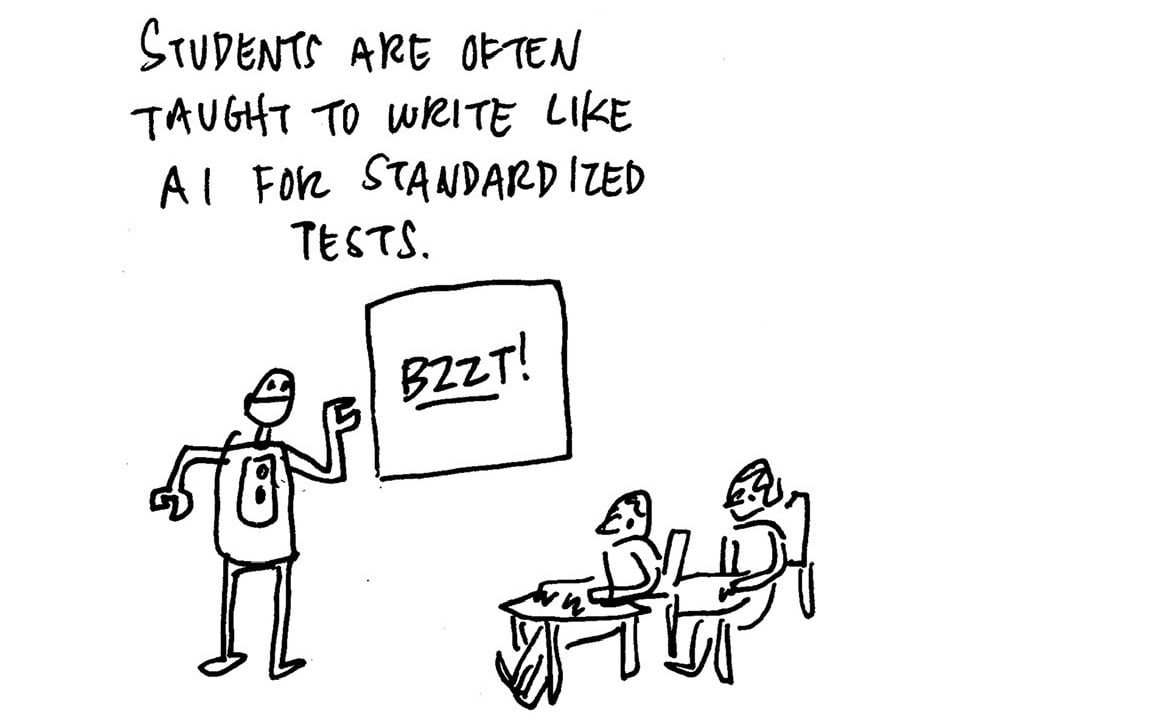 STUDENTS ARE OFTEN
TAUGHT TO WRITE LIKE
AI FOR STANDARDIZED
TESTS.
BZZT!